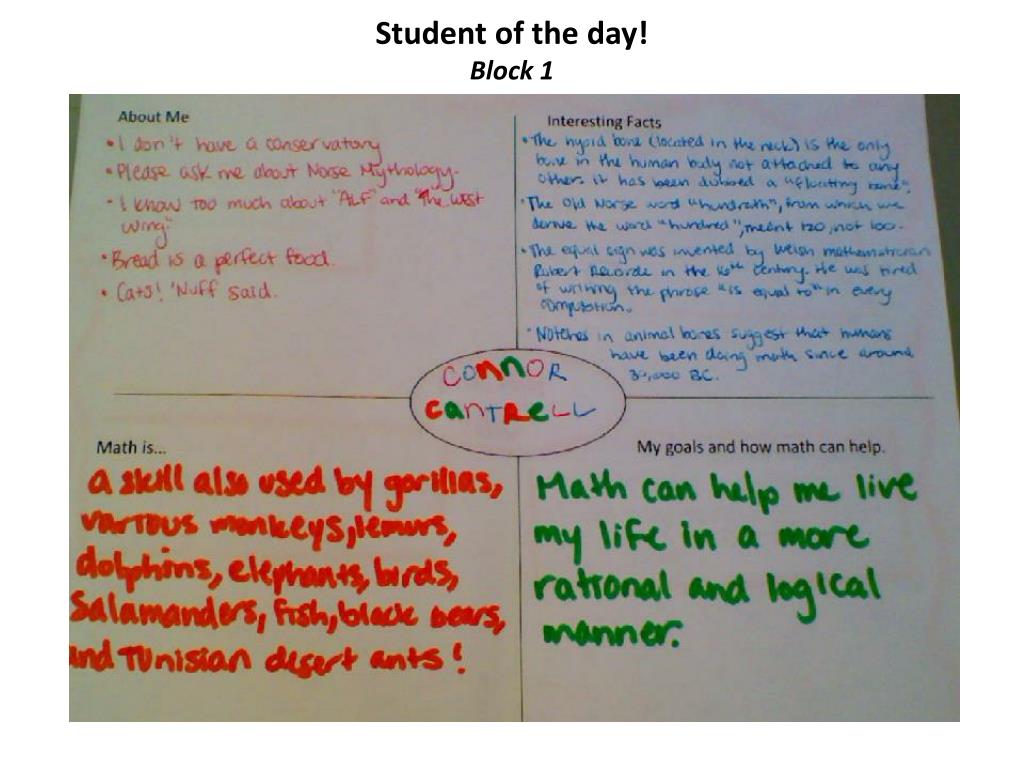 Student of the day!
Block 1
About Me
• I don't have a conservatory
• Please ask me about Norse Mythology.
• I know too much about "ALF" and "The West
Wing."
• Bread is a perfect food.
• Cats! 'Nuff said.
Interesting Facts
• The hyoid bone (located in the neck) is the only
bone in the human body not attached to any
other. it has been dubbed a "floating bone".
• The Old Norse word "hundrath", from which we
derive the word "hundred", meant 120, not 100.
• The equal sign was invented by Welsh mathematician
Robert Recorde in the 16th century. He was tired
of writing the phrase "is equal to" in every
computation.
• Notches in animal bones suggest that humans
have been doing math since around
30,000 BC.
CONNOR
CANTRELL
Math is...
a skill also used by gorillas,
various monkeys, lemurs,
dolphins, elephants, birds,
Salamanders, fish, black bears,
and Tunisian desert ants!
My goals and how math can help.
Math can help me live
my life in a more
rational and logical
manner.